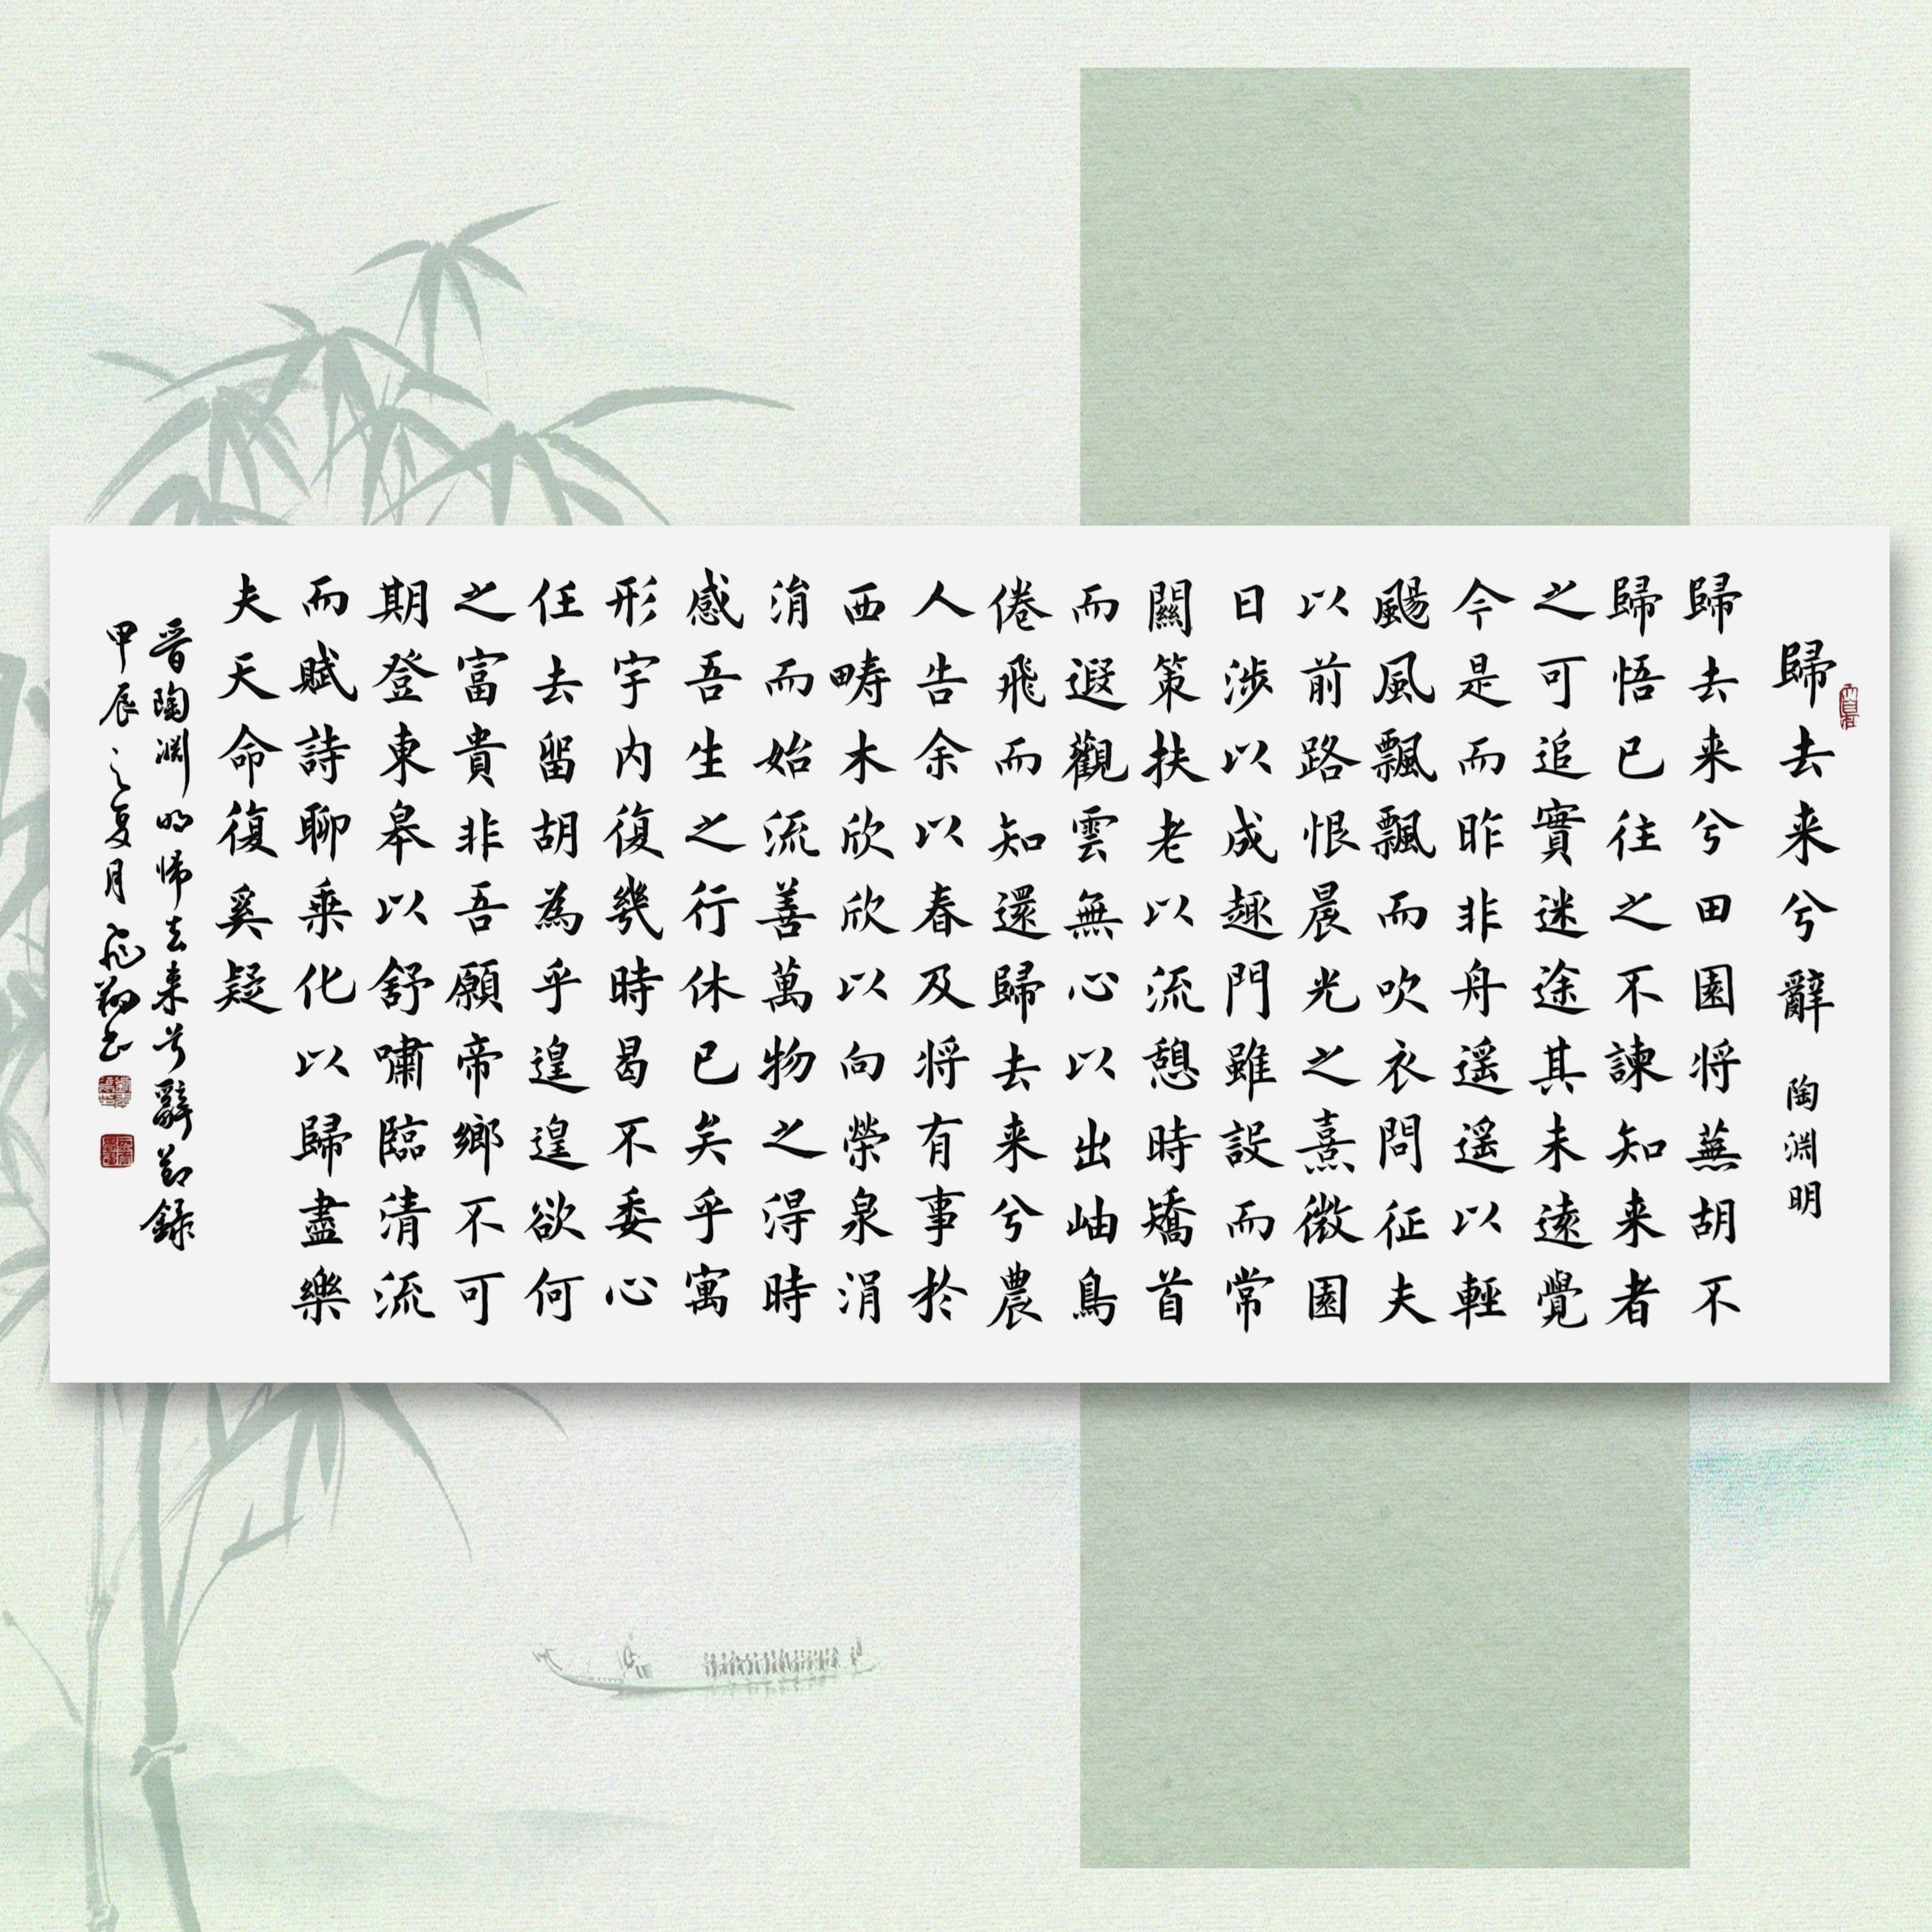 歸去来兮辭 陶淵明
歸去来兮田園将蕪胡不
歸悟已往之不諫知来者
之可追實迷途其未遠覺
今是而昨非舟遥遥以輕
颺風飄飄而吹衣問征夫
以前路恨晨光之熹微園
日涉以成趣門雖設而常
關策扶老以流憩時矯首
而遐觀雲無心以出岫鳥
倦飛而知還歸去来兮農
人告余以春及将有事於
西畴木欣欣以向榮泉涓
涓而始流善萬物之得時
感吾生之行休已矣乎寓
形宇内復幾時曷不委心
任去留胡為乎遑遑欲何
之富貴非吾願帝鄉不可
期登東皋以舒嘯臨清流
而賦詩聊乘化以歸盡樂
夫天命復奚疑
晋陶淵明歸去来兮辭節錄
甲辰之夏月飛翔書